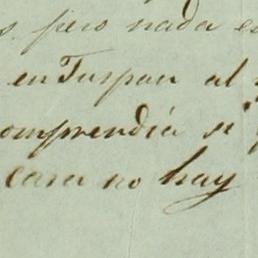 s pero nada e
en Tuspan al
omprendia si
casa no hay